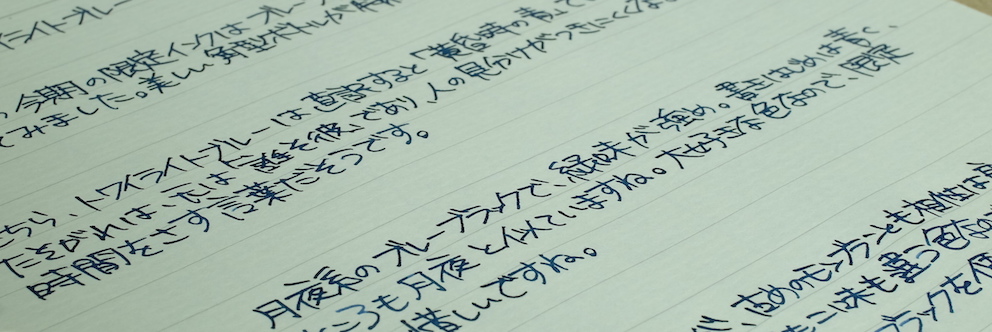 トワイライトブルー
、今期の限定インクはブルー
てみました。美しい角型ボトルが
こちら、トワイライトブルーは直訳すると「黄昏時の青」で
たそがれは、元は「誰そ彼」であり、人の見分けがつきにくくな
時間をさす言葉だそうです。
月夜系のブルーブラックで、緑味が強め。書きはじめは青く、
ところも月夜と似ていますね。大好きな色なので、限定
惜しいですね。
、古めのモンブランとも相性は良
も違う色なの
ブラックを使